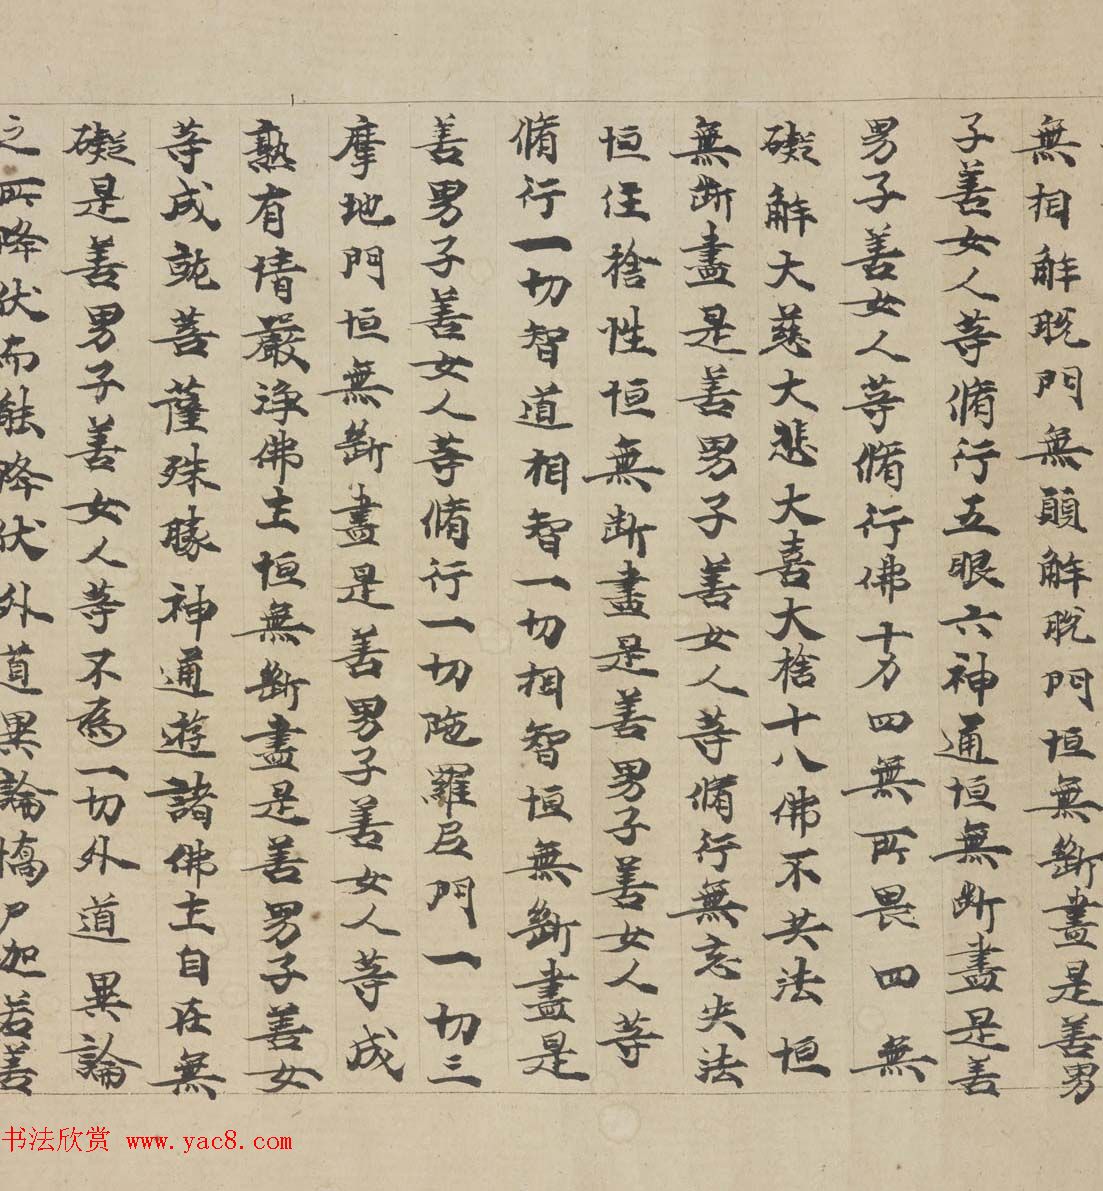 無相解脫門無願解脫門恒無斷盡是善男
子善女人等脩行五眼六神通恒無斷盡是善
男子善女人等脩行佛十力四無所畏四無
礙解大慈大悲大喜大捨十八佛不共法恒
無斷盡是善男子善女人等脩行無忘失法
恒住捨性恒無斷盡是善男子善女人等
脩行一切智道相智一切相智恒無斷盡是
善男子善女人等脩行一切陁羅尼門一切三
摩地門恒無斷盡是善男子善女人等成
熟有情嚴淨佛土恒無斷盡是善男子善女
等成就菩薩殊勝神通遊諸佛土自在無
礙是善男子善女人等不為一切外道異論
之所降伏而能降伏外道異論憍尸迦若善
书法欣赏 www.yac8.com